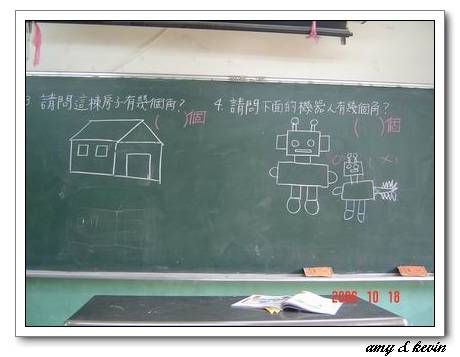 3. 請問這棟房子有幾個角？
(　　)個
4. 請問下面的機器人有幾個角？
(　　)個
2006 10 18
amy & kevin